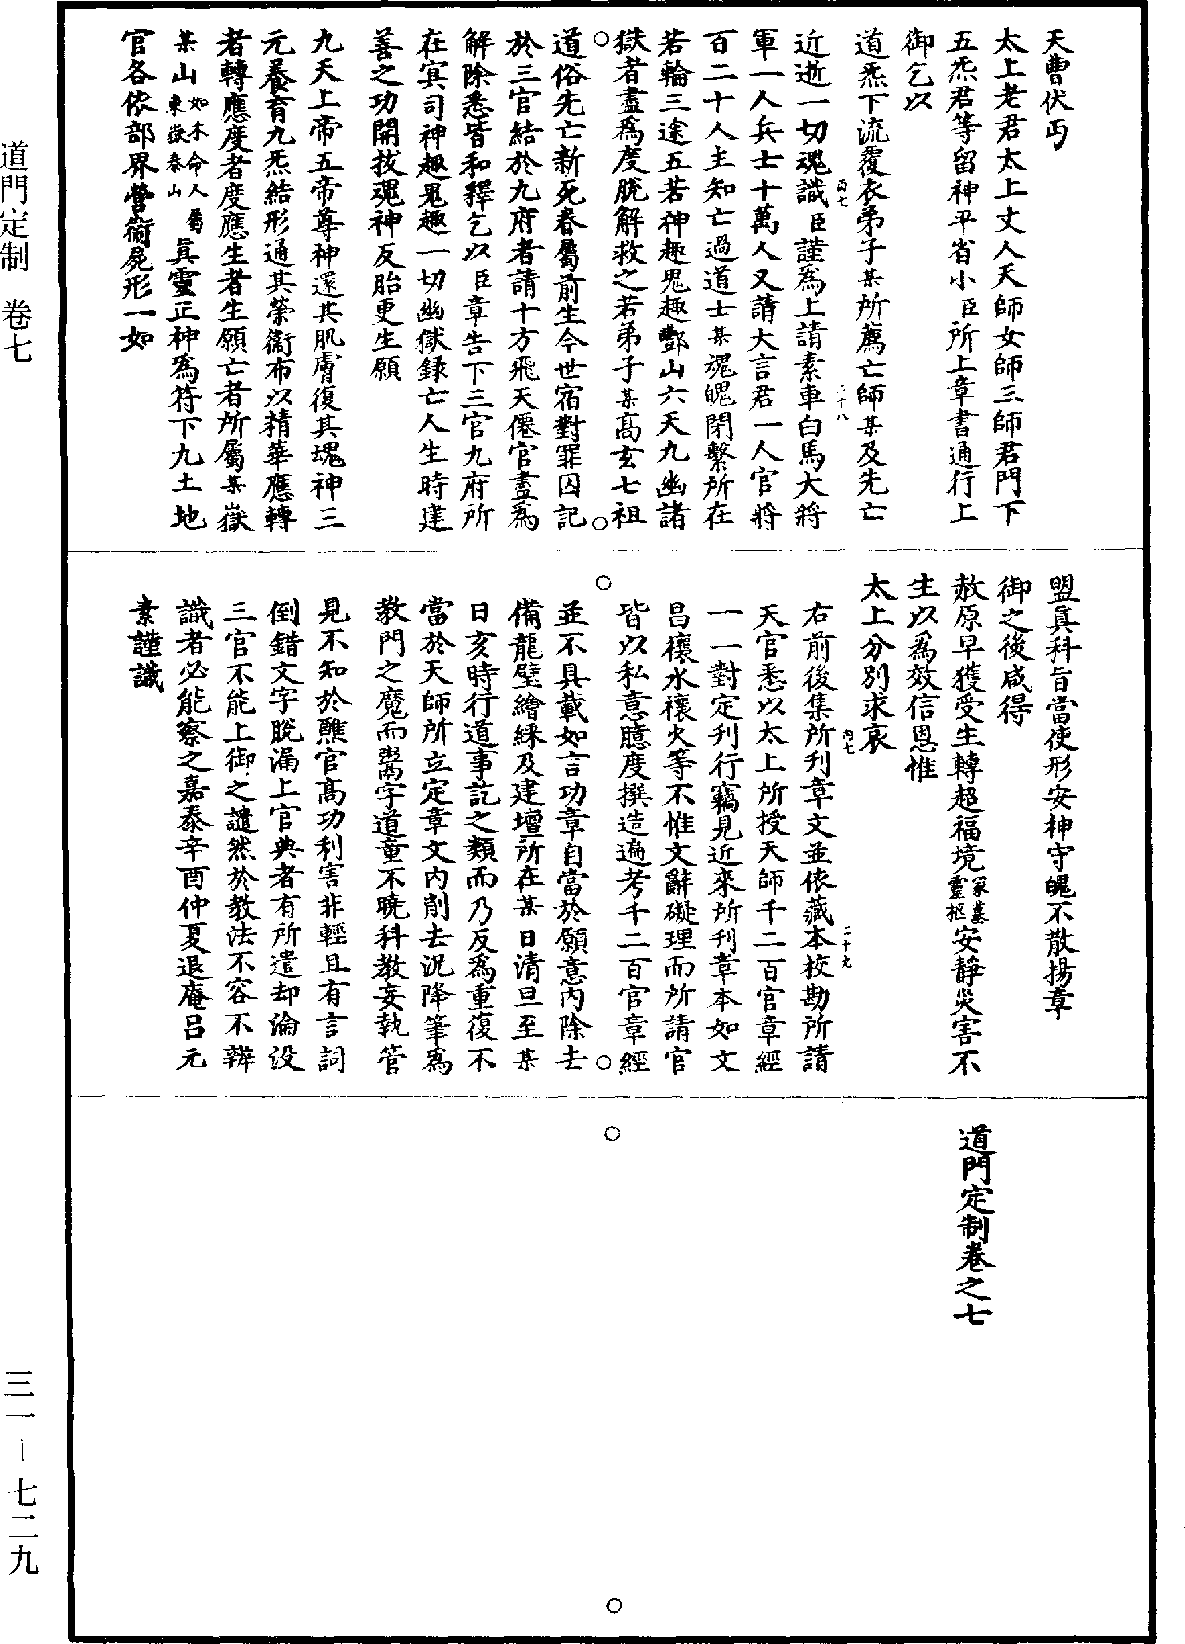 天曹伏丐
太上老君太上丈人天師女師三師君門下
五炁君等留神平省小臣所上章書通行上
御乞以
道炁下流覆衣弟子某所薦亡師某及先亡
近逝一切魂識臣謹為上請素車白馬大將
軍一人兵士十萬人又請大言君一人官將
百二十人主知亡過道士某魂魄閉繫所在
若輪三途五苦神趣鬼趣酆山六天九幽諸
獄者盡為度脫解救之若弟子某高玄七祖
道俗先亡新死眷屬前生今世宿對罪囚記
於三官結於九府者請十方飛天僊官盡為
解除悉皆和釋乞以臣章告下三官九府所
在㝠司神趣鬼趣一切幽獄錄亡人生時建
善之功開拔魂神反胎更生願
九天上帝五帝尊神還其肌膚復其塊神三
元養育九炁結形通其榮衞布以精華應轉
者轉應度者度應生者生願亡者所屬某嶽
某山如本命人屬東嶽泰山眞靈正神為符下九土地
官各依部界營衞屍形一如
盟眞科旨當使形安神守魄不散揚章
御之後咸得
赦原早獲受生轉超福境冢墓靈柩安靜災害不
生以為效信恩惟
太上分別求哀
右前後集所刊章文並依藏本校勘所請
天官悉以太上所授天師千二百官章經
一一對定刊行竊見近來所刊章本如文
昌禳水禳火等不惟文辭礙理而所請官
皆以私意臆度撰造遍考千二百官章經
並不具載如言功章自當於願意內除去
備龍璧繒綵及建壇所在某日清旦至某
日亥時行道事訖之類而乃反為重復不
當於天師所立定章文內削去況降筆為
教門之魔而鬻字道童不曉科教妄執管
見不知於醮官高功利害非輕且有言詞
倒錯文字脫漏上官典者有所遣却淪沒
三官不能上御之譴然於教法不容不辨
識者必能察之嘉泰辛酉仲夏退庵呂元
素謹識
道門定制卷之七
丙七
二十八
丙七
二十九
道門定制　卷七
三一－七二九